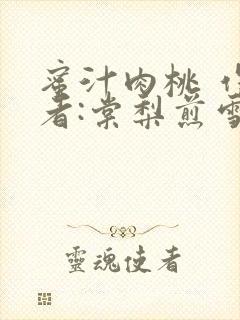 蜜汁肉桃
者:棠梨煎雪
靈魂使者